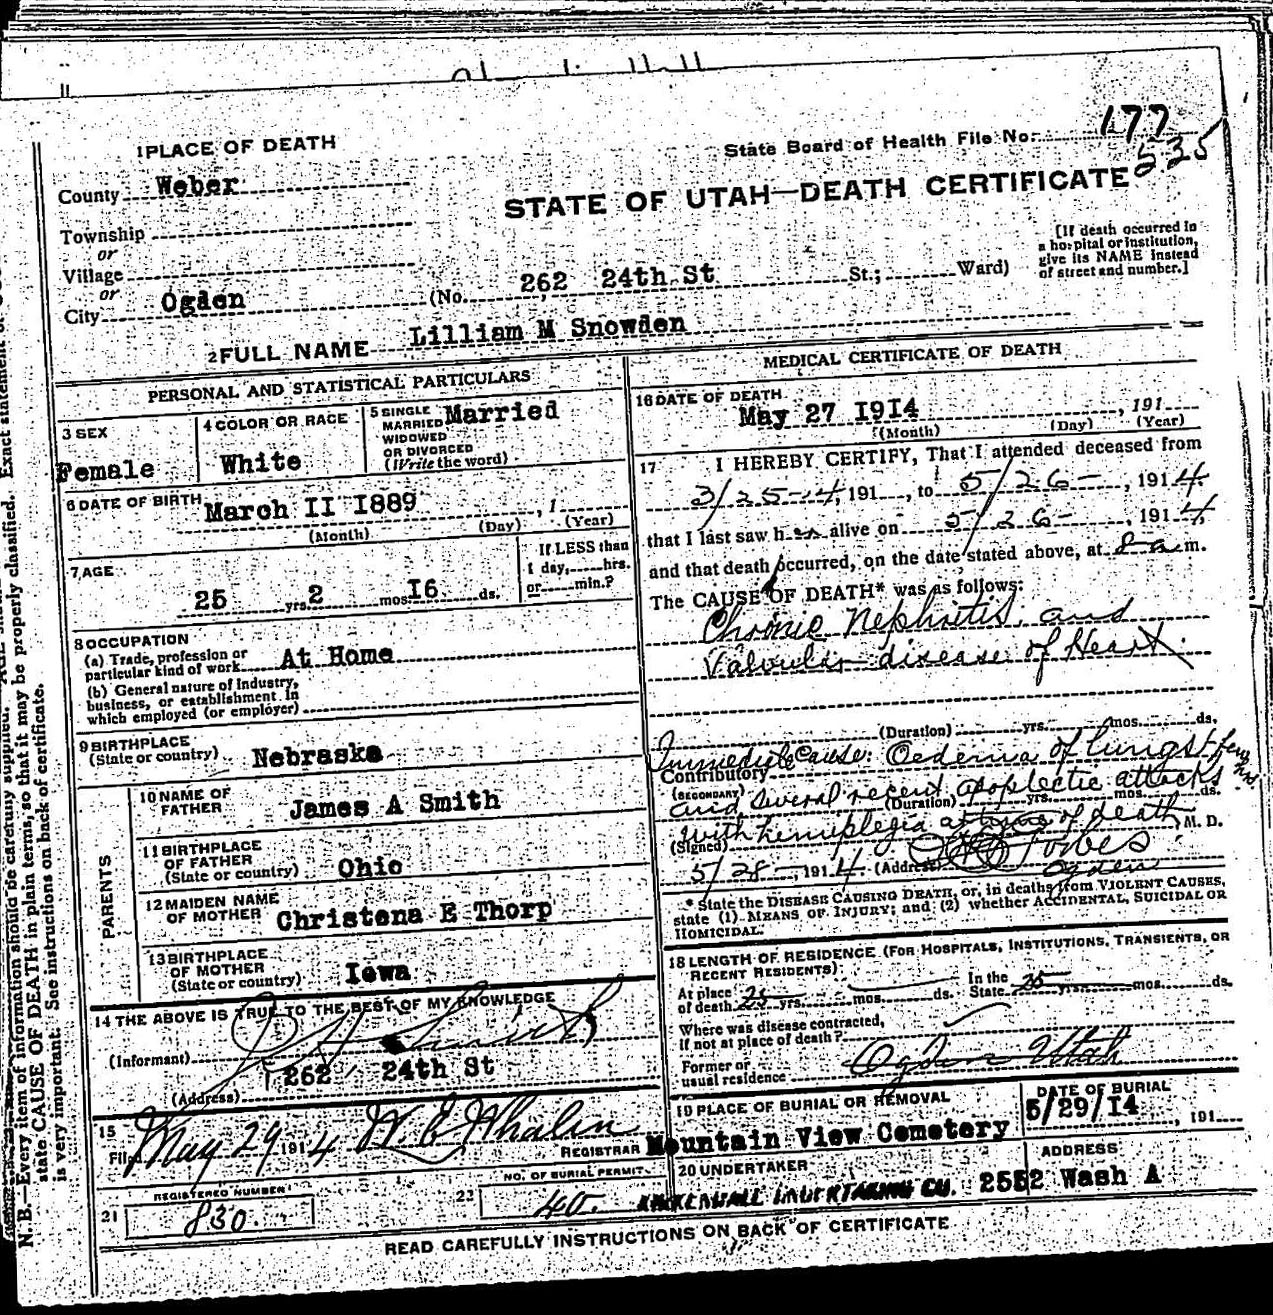 177
535
State Board of Health File No.
1 PLACE OF DEATH
STATE OF UTAH—DEATH CERTIFICATE
County Weber
Township
or
Village
or
City Ogden (No. 262 24th St St.; Ward)
[If death occurred in
a hospital or institution,
give its NAME instead
of street and number.]
2 FULL NAME Lilliam M Snowden
PERSONAL AND STATISTICAL PARTICULARS
3 SEX
Female
4 COLOR OR RACE
White
5 SINGLE
MARRIED
WIDOWED
OR DIVORCED
(Write the word)
Married
6 DATE OF BIRTH
March II I889, 1
(Month) (Day) (Year)
7 AGE
25 yrs 2 mos I6 ds.
If LESS than
1 day, hrs.
or min.?
8 OCCUPATION
(a) Trade, profession or
particular kind of work At Home
(b) General nature of Industry,
business, or establishment in
which employed (or employer)
9 BIRTHPLACE
(State or country) Nebraska
PARENTS
10 NAME OF
FATHER James A Smith
11 BIRTHPLACE
OF FATHER
(State or country) Ohio
12 MAIDEN NAME
OF MOTHER Christena E Thorp
13 BIRTHPLACE
OF MOTHER
(State or country) Iowa
14 THE ABOVE IS TRUE TO THE BEST OF MY KNOWLEDGE
(Informant) Smith
262 24th St
(Address)
15
Filed May 29 1914 W. E. Whalen
REGISTRAR
REGISTERED NUMBER
21 830.
NO. OF BURIAL PERMIT
22 40.
MEDICAL CERTIFICATE OF DEATH
16 DATE OF DEATH
May 27 I9I4, 191
(Month) (Day) (Year)
17 I HEREBY CERTIFY, That I attended deceased from
3/25-14, 191, to 5/26-, 1914.
that I last saw her alive on 5/26-, 1914,
and that death occurred, on the date stated above, at 8 a m.
The CAUSE OF DEATH* was as follows:
Chronic Nephritis and
Valvular disease of Heart.
(Duration) yrs. mos. ds.
Immediate cause: Oedema of lungs
Contributory
(SECONDARY)
and several recent apoplectic attacks
(Duration) yrs. mos. ds.
with hemiplegia at time of death
(Signed) Forbes M. D.
5/28-, 1914. (Address) Ogden
* State the DISEASE CAUSING DEATH, or, in deaths from VIOLENT CAUSES,
state (1) MEANS OF INJURY; and (2) whether ACCIDENTAL, SUICIDAL OR
HOMICIDAL.
18 LENGTH OF RESIDENCE (FOR HOSPITALS, INSTITUTIONS, TRANSIENTS, OR
RECENT RESIDENTS)
At place
of death 25 yrs. mos. ds.
In the
State 25 yrs. mos. ds.
Where was disease contracted,
if not at place of death?
Former or
usual residence Ogden Utah
19 PLACE OF BURIAL OR REMOVAL
Mountain View Cemetery
DATE OF BURIAL
5/29/I4, 191
20 UNDERTAKER
UNDERTAKING CO.
ADDRESS
2552 Wash A
READ CAREFULLY INSTRUCTIONS ON BACK OF CERTIFICATE
N. B.—Every item of information should be carefully supplied.
state CAUSE OF DEATH in plain terms, so that it may be properly classified. Exact statement of
is very important. See instructions on back of certificate.